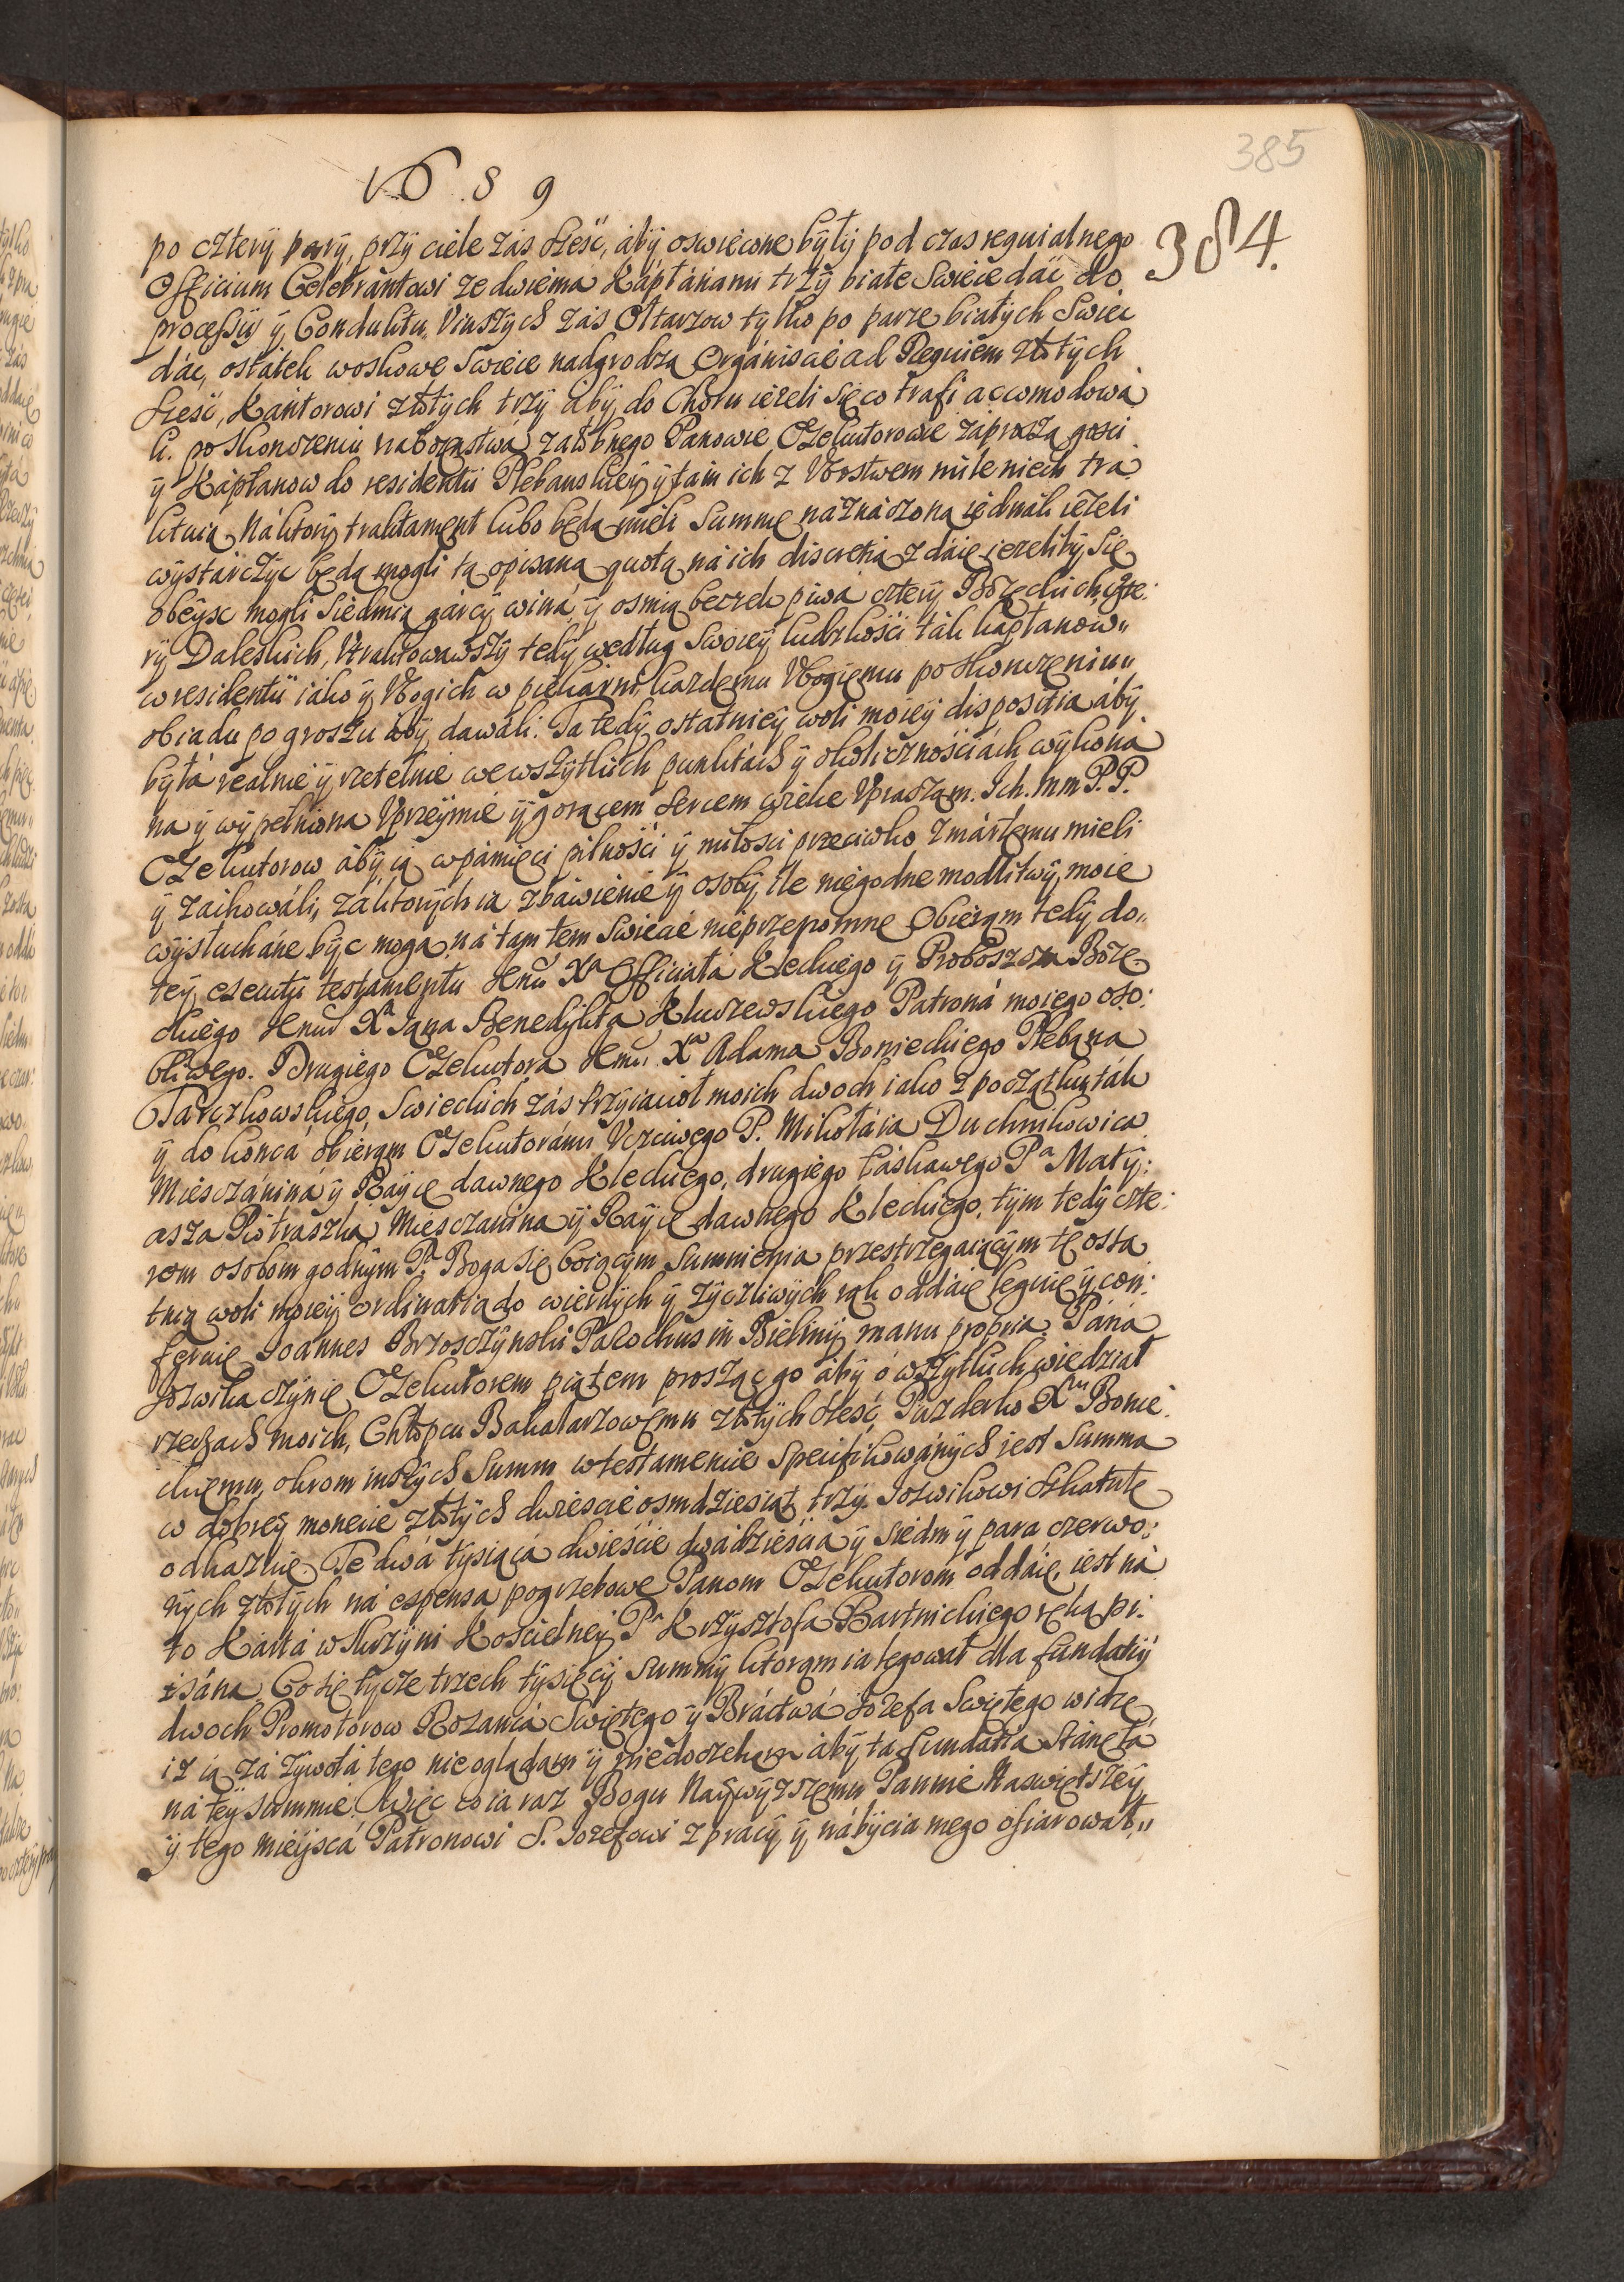 385
1689
384.
po cztery pary, przy ciele zás sześć, aby oswiecone były pod czas requialnego
Officium Celebrantowi ze dwiema Kápłanami trzy białe Swiece dáć do
processiy y Conduktu, V inszych zás Ołtarzow tylko po parze białych Swiec
dác, ostátek woskowe Swiece nadgrodzą Orgániscie ad Requiem złotych
sześć, Kantorowi złotych trzy áby do Choru ieżeli się co trafi accomodowá
li. po skonczeniu naborzenstwá załobnego Panowie Exekutorowie záproszą gosci
y Kápłanow do residentii Plebanskiey y tam ich z Vbostwem mile niech tra
ktuią. Ná ktory traktament lubo będą mieli summę náznáczoną iednák ieżeli
wystárczyc będą mogli tą opisaną quotą ná ich discretią zdáię ieżeliby się
obeysc mogli siedmią gárcy winá y osmią beczek piwá cztery Bożęckich czte:
ry Daleskich, Vtraktowawszy tedy według swoiey ludzkośći ták kapłanow
w residentii iáko y Vbogich w piekárni, kazdemu Vbogiemu po skonczeniu
obiadu po groszu áby dawáli. Ta tedy ostatniey woli moiey dispositia áby
byłá realnie y rzetelnie we wszytkich punktách y okolicznościách wykoná
na y wypełniona Vprzeymie y gorącem sercem wielce Vpraszam. Ich. mm P.P.
Exekutorow áby ią w pámięci pilnośći y miłosci przeciwko zmárłemu mieli
y záchowáli, zá ktorych ia zbáwienie y osoby, ile niegodne modlitwy moie
wysłucháne być mogą, ná tam tem swiecie nieprzepomnę Obieram tedy do
tey executii testamentu Jmći Xa Officiałá Kleckiego y Proboszcza Bożę
ckiego Jmći Xa Jana Benedykta Kluszewskiego Patroná moiego oso:
bliwego. Drugiego Exekutora Jmći Xa Adama Bonieckiego Plebana
Tarczkowskiego, Swieckich zás przyiacioł moich dwoch iako z początku ták
y do koncá obieram Exekutorámi Vczciwego P. Mikołáia Duchnikowica
Miesczániná y Rayce dawnego Kleckiego, drugiego łáskawego Pa Maty:
asza Piotraszka Miesczanina y Rayce dawnego Kleckiego, tym tedy czte:
rem osobom godnym Pa Boga się boiącym sumnienia przestrzegaiącym tę osta
tnią woli moiey ordinatią do wiernych y życzliwych rąk oddáię leguię y con:
feruię Joannes Brzosczynski Parochus in Bieliny manu propria. Páná
Jozwika czynię Exekutorem piątem prosząc go áby o wszytkich wiedział
rzeczach moich, Chłopcu Bakałarzowemu złotych sześć, Puzderko Xu Bonie
ckiemu, okrom inszych Summ w testamencie specifikowánych iest Summa
w dobrey monecie złotych dwiescie osmdziesiąt trzy Jozwikowi szkatułę
odkazuię. Te dwá tysiącá dwieście dwádzieściá y siedm y para czerwo:
nych złotych ná expensa pogrzebowe Panom Exekutorom oddáię, iest ná
to Kártá w skrzyni Kościelney Pa Krzysztofa Bartnickiego ręką pi:
sána. Co się tycze trzech tysięcy summy ktorąm ia legował dla fundatiy
dwoch Promotorow Rozancá Swiętego y Bráctwá Jozefa Swiętego widzę
iż ia zá żywotá tego nie oglądam y niedoczekam áby ta fundatia stánęłá
ná tey summie. Więc co ia raz Bogu Naywyższemu Pannie Naswiętszey
y tego mieyscá Patronowi S. Jozefowi z pracy y nábycia mego ofiarował